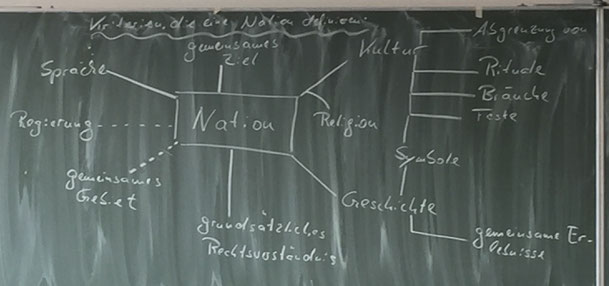 Kriterien, die eine Nation definieren:
gemeinsames
Ziel
Kultur
Abgrenzung von
Sprache
Rituale
Bräuche
Feste
Regierung
Nation
Religion
Symbole
gemeinsames
Gebiet
Geschichte
grundsätzliches
Rechtsverständnis
gemeinsame Er-
lebnisse